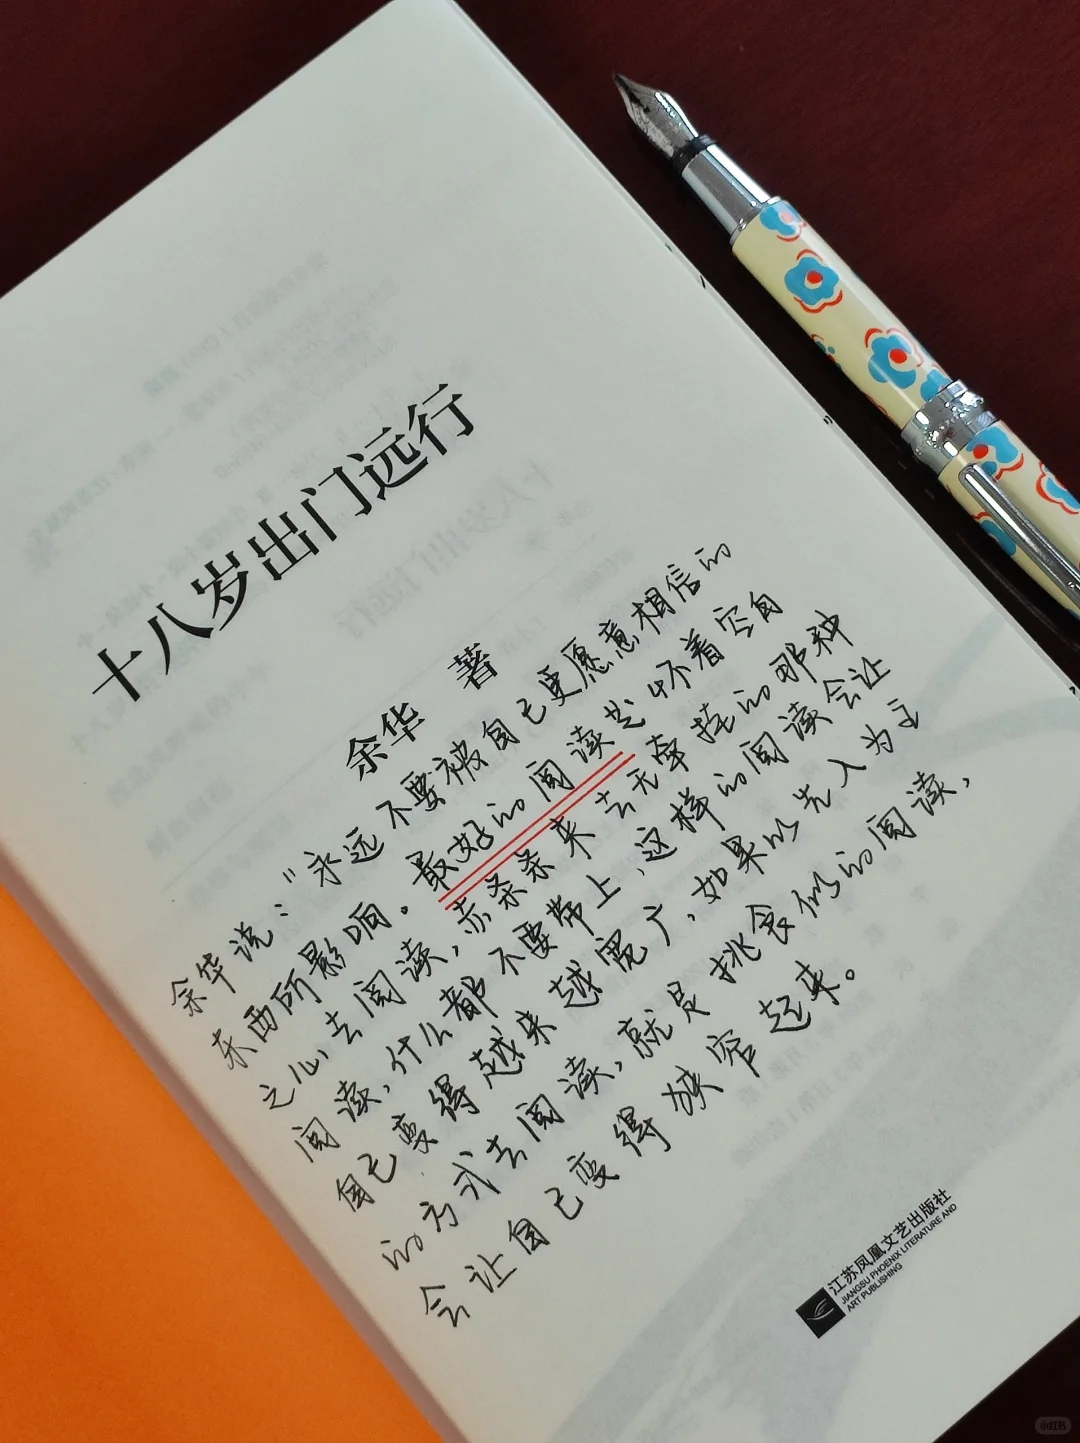 十八岁出门远行
余华 著
余华说："永远不要被自己更愿意相信的
东西所影响。最好的阅读是怀着空白
之心去阅读，赤条条来去无牵挂的那种
阅读，什么都不要带上，这样的阅读会让
自己变得越来越宽广，如果以先入为主
的方式去阅读，就是挑食似的阅读，
会让自己变得狭窄起来。
江苏凤凰文艺出版社
JIANGSU PHOENIX LITERATURE AND
ART PUBLISHING
小红书